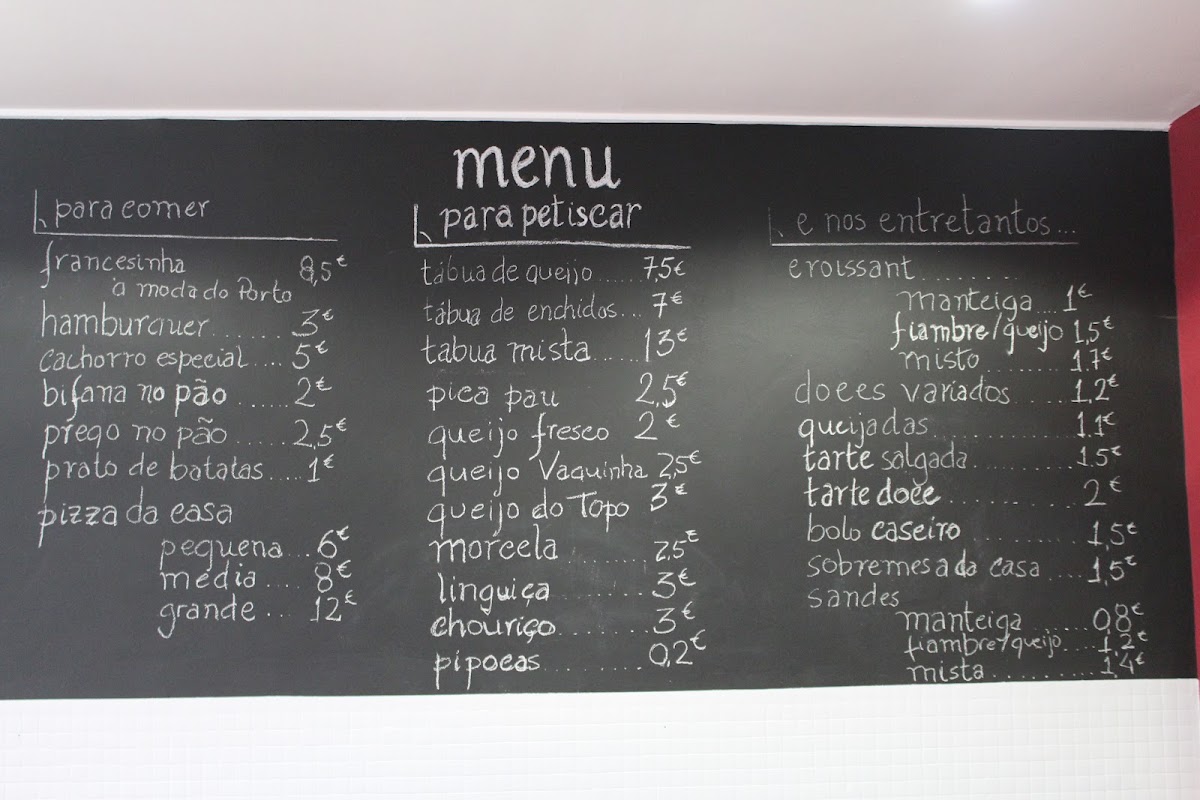 menu
para comer
francesinha 8,5€
à moda do Porto
hamburguer....... 3€
cachorro especial..... 5€
bifana no pão ...... 2€
prego no pão ...... 2,5€
prato de batatas.... 1€
pizza da casa
pequena... 6€
média ..... 8€
grande ... 12€
para petiscar
tábua de queijo ..... 7,5€
tábua de enchidos... 7€
tabua mista...... 13€
pica pau 2,5€
queijo fresco 2€
queijo Vaquinha 2,5€
queijo do Topo 3€
morcela ......... 2,5€
linguiça .......... 3€
chouriço.......... 3€
pipocas .......... 0,2€
e nos entretantos...
croissant .........
manteiga ... 1€
fiambre/queijo 1,5€
misto ........ 1.7€
doces variados ..... 1,2€
queijadas ............. 1.1€
tarte salgada........... 1.5€
tarte doce ......... 2€
bolo caseiro ........... 1,5€
sobremesa da casa .... 1,5€
sandes
manteiga ....... 0,8€
fiambre/queijo.... 1,2€
mista ........... 1,4€